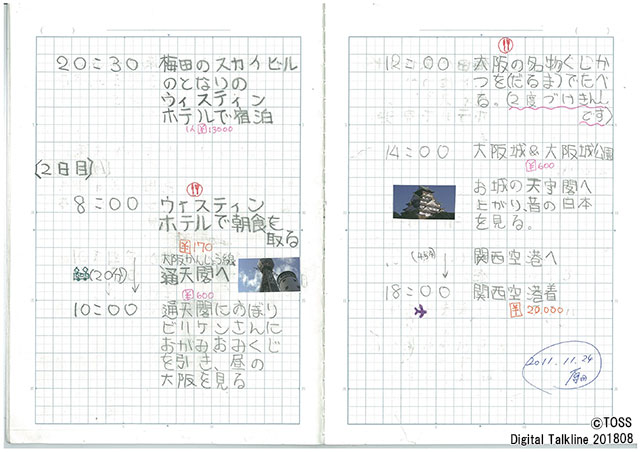 20:30 梅田のスカイビル
のとなりの
ウィスティン
ホテルで宿泊
1人¥13000
(2日目)
8:00 ウィスティン
ホテルで朝食を
取る
¥170
大阪かんじょう線
(20分) 通天閣へ
¥600
10:00 通天閣にのぼり
ビリケンさんに
おがみおみくじ
を引き、昼の
大阪を見る
12:00 大阪の名物くしか
つを(だるま)でたべ
る。(2度づけきんし
です)
14:00 大阪城&大阪城公園
¥600
お城の天守閣へ
上がり、昔の日本
を見る。
(45分) 関西空港へ
18:00 関西空港着
¥20,000
2011.11.24
©TOSS
Digital Talkline 201808